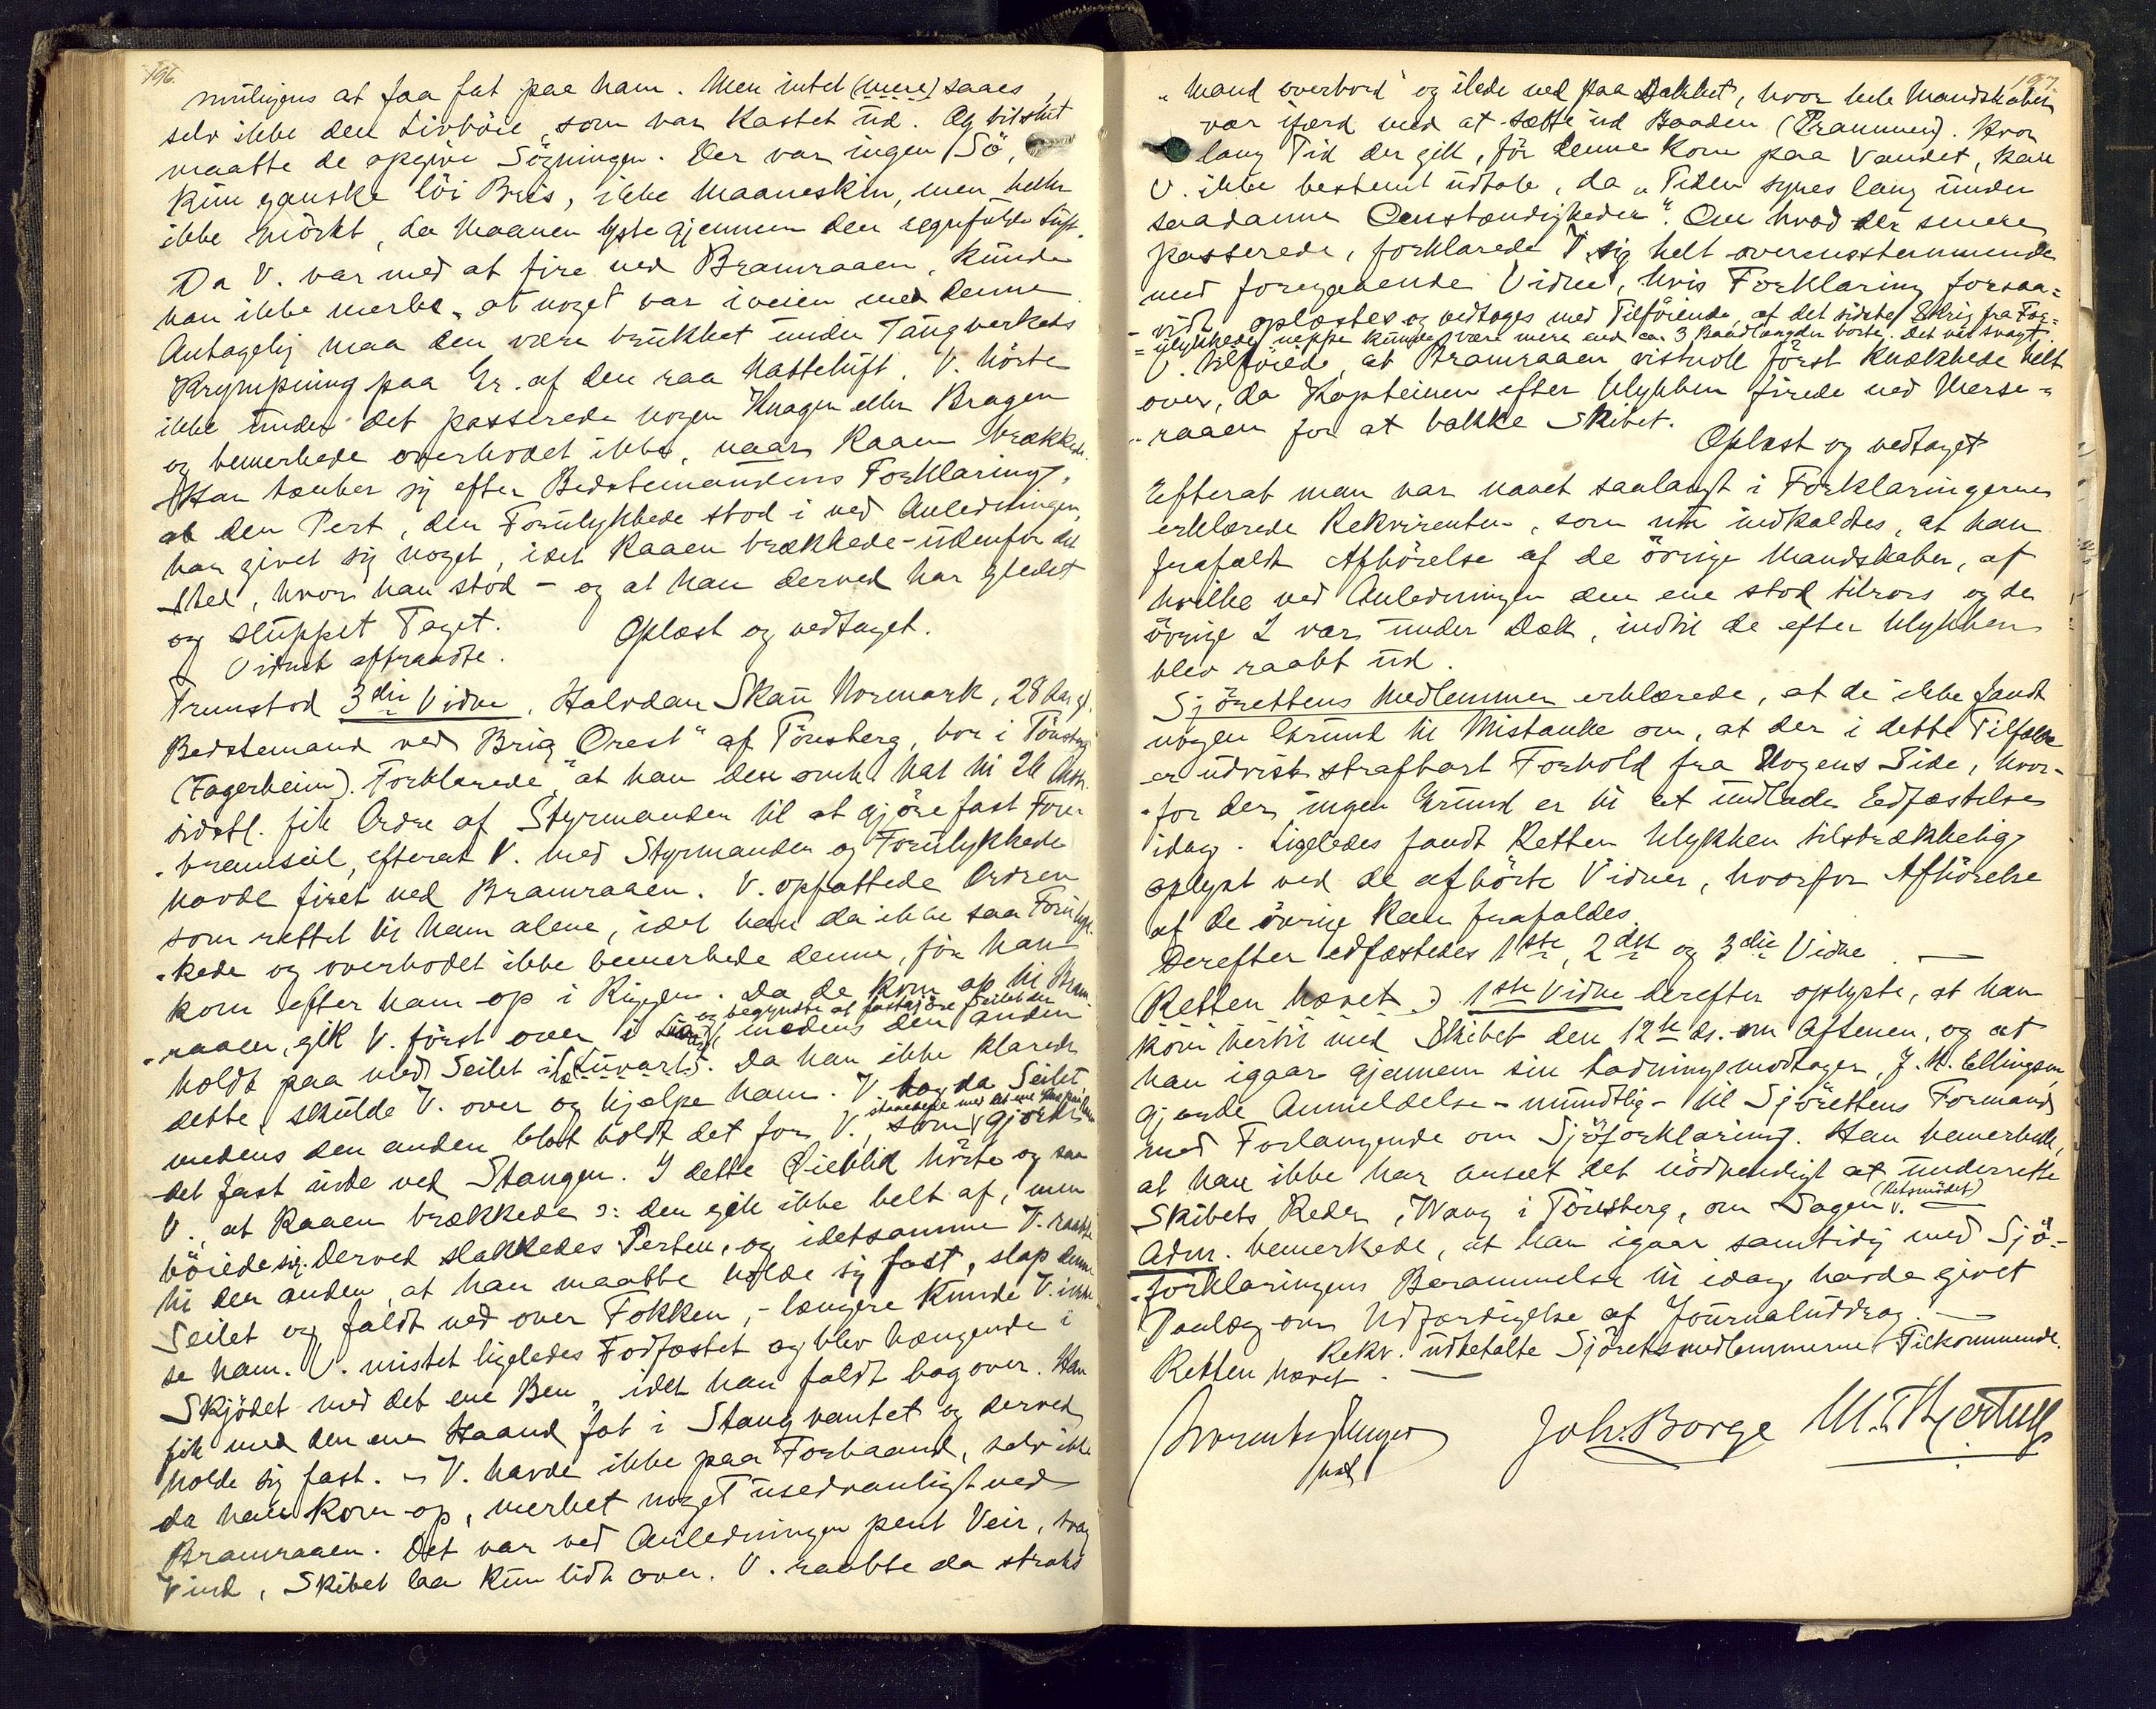 196.
muligens at faa fat paa ham. Men intet (mere) saaes,
selv ikke den Livböie, som var kastet ud. Og tilslut
maatte de opgive Sögningen. Der var ingen Sö,
kun ganske löi Bris, ikke Maaneskin, men heller
ikke mörkt, da Maanen lyste gjennem den regnfulde Luft.
Da V. var med at fire ned Bramraaen, kunde
han ikke merke, at noget var iveien med denne.
Antagelig maa den være brukket under Taugverkets
Krympning paa Gr. af den raa Natteluft. V. hörte
ikke under det passerede nogen Knagen eller Bragen
og bemerkede overhodet ikke, naar Raaen brækkede.
Han tænker sig efter Bedstemandens Forklaring,
at den Pert, den Forulykkede stod i ved Anledningen,
har givet sig noget, idet Raaen brækkede - udenfor det
Sted, hvor han stod - og at han derved har glidet
og sluppet Taget. Oplæst og vedtaget.
Vidnet aftraadte.
Fremstod 3die Vidne, Halvdan Skau Normark, 28 Aar gl.
Bedstemand ved Brig "Orest" af Tönsberg, bor i Tönsberg
(Fagerheim). Forklarede, at han den omh. Nat til 26
sidstl. fik Ordre af Styrmanden til at gjöre fast For-
bramseil, efterat V. med Styrmanden og Forulykkede
havde firet ned Bramraaen. V. opfattede Ordren
som rettet til ham alene, idet han da ikke saa Forulyk-
kede og overhodet ikke bemerkede denne, för han
kom efter ham op i Riggen. Da de kom op til Bram-
og begyndte at fastgjöre Seilet der
raaen, gik V. först over i medens den anden
holdt paa med Seilet i Luvart. Da han ikke klarede
dette, skulde V. over og hjælpe ham. V. tog da Seilet,
medens den anden blot holdt det for V., som gjorde
det fast inde ved Stangen. I dette Öieblik hörte og saa
V., at Raaen brækkede ɔ: den gik ikke helt af, men
böiede sig. Derved slakkedes Perten, og idetsamme V. raabte
til den anden, at han maatte holde sig fast, slap denne
Seilet og faldt ned over Fokken, - længere kunde V. ikke
se ham. V. mistet ligeledes Fodfæstet og blev hængende i
Skjödet med det ene Ben, idet han faldt bagover. Han
fik med den ene Haand fat i Stangvantet og derved
holde sig fast. - V. havde ikke paa Forhaand, selv ikke
da han kom op, merket noget usedvanligt ved
Bramraaen. Det var ved Anledningen pent Veir, svag
Vind, Skibet laa kun lidt over. V. raabte da straks
197.
"Mand overbord" og ilede ned paa Dækket, hvor hele Mandskabet
var ifærd med at sætte ud Baaden (Prammen). Hvor
lang Tid der gik, för denne kom paa Vandet, kan
V. ikke bestemt udtale, da "Tiden synes lang under
saadanne Omstændigheder". Om hvad der senere
passerede, forklarede V. sig helt overensstemmende
med foregaaende Vidne, hvis Forklaring forsaa-
vidt oplæstes og vedtoges med Tilföiende, at det sidste Skrig fra For-
ulykkede neppe kunde være mere end ca. 3 Baadlængder borte. Det var svagt.
V. tilföiede, at Bramraaen vistnok först knækkede helt
over, da Kapteinen efter Ulykken firede ned Merse-
raaen for at bakke Skibet.
Oplæst og vedtaget
Efterat man var naaet saalangt i Forklaringerne
erklærede Rekvirenten, som nu indkaldtes, at han
frafaldt Afhörelse af de övrige Mandskaber, af
hvilke ved Anledningen den ene stod tilrors og de
övrige 2 var under Dæk, indtil de efter Ulykken
blev raabt ud.
Sjörettens Medlemmer erklærede, at de ikke fandt
nogen Grund til Mistanke om, at der i dette Tilfælde
er udvist strafbart Forhold fra Nogens Side, hvor-
for der ingen Grund er til at undlade Eedfæstelse
idag. Ligeledes fandt Retten Ulykken tilstrækkelig
oplyst ved de afhörte Vidner, hvorfor Afhörelse
af de övrige kan frafaldes.
Derefter edfæstedes 1ste, 2det og 3die Vidne. —
(Retten hævet.) 1ste Vidne derefter oplyste, at han
kom hertil med Skibet den 12te ds. om Aftenen, og at
han igaar gjennem sin Ladningsmodtager, J. N. Ellingsen,
gjorde Anmeldelse - mundtlig - til Sjörettens Formand
med Forlangende om Sjöforklaring. Han bemerkede,
at han ikke har anseet det nödvendigt at underrette
Skibets Reder, Wang i Tönsberg, om Sagen (Retsmödet).
Adm. bemerkede, at han igaar samtidig med Sjö-
forklaringens Berammelse til idag havde givet
Paalæg om Udfærdigelse af Journaluddrag. —
Rekv. udbetalte Sjöretsmedlemmerne Tilkommende.
Retten hævet. —
Joh. Borge